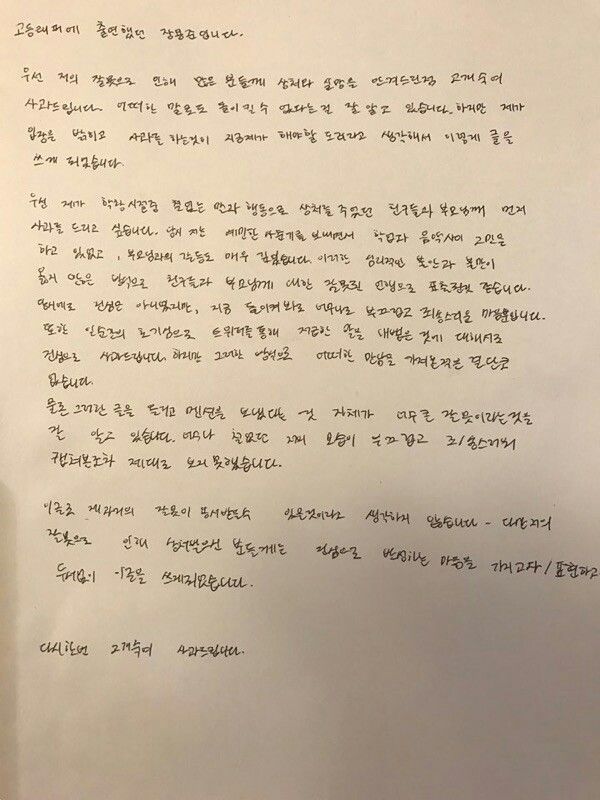 고등래퍼에 출연했던 장용준입니다.
우선 저의 잘못으로 인해 많은 분들께 상처와 실망을 안겨드린점 고개숙여
사과드립니다. 어떠한 말로도 돌이킬 수 없다는걸 잘 알고 있습니다. 하지만 제가
입장을 밝히고 사과를 하는것이 지금제가 해야할 도리라고 생각해서 이렇게 글을
쓰게 되었습니다.
우선 제가 학창시절중 철없는 말과 행동으로 상처를 주었던 친구들과 부모님께 먼저
사과를 드리고 싶습니다. 당시 저는 예민한 사춘기를 보내면서 학업과 음악사이 고민을
하고 있었고, 부모님과의 갈등도 매우 깊었습니다. 이러한 심리적인 불안과 불만이
옳지 않은 방식으로 친구들과 부모님께 대한 잘못된 언행으로 표출된것 같습니다.
절대로 진심은 아니었지만, 지금 돌이켜봐도 너무나도 부끄럽고 죄송스러운 마음뿐입니다.
또한 일순간의 호기심으로 트위터를 통해 저급한 말을 내뱉은것에 대해서도
진심으로 사과드립니다. 하지만 그러한 방식으로 어떠한 만남을 가져본적은 결단코
없습니다.
물론 그러한 글을 올리고 멘션을 보냈다는 것 자체가 너무 큰 잘못이라는것을
잘 알고 있습니다. 너무나 철없던 제 모습이 부끄럽고 죄송스러워
캡쳐본조차 제대로 보지 못했습니다.
이글로 제과거의 잘못이 용서받을수 있을것이라고 생각하지 않습니다. 다만 저의
잘못으로 인해 상처받으신 분들께는 진심으로 반성하는 마음을 가지고자 / 표현하고
두서없이 이글을 쓰게되었습니다.
다시한번 고개숙여 사과드립니다.